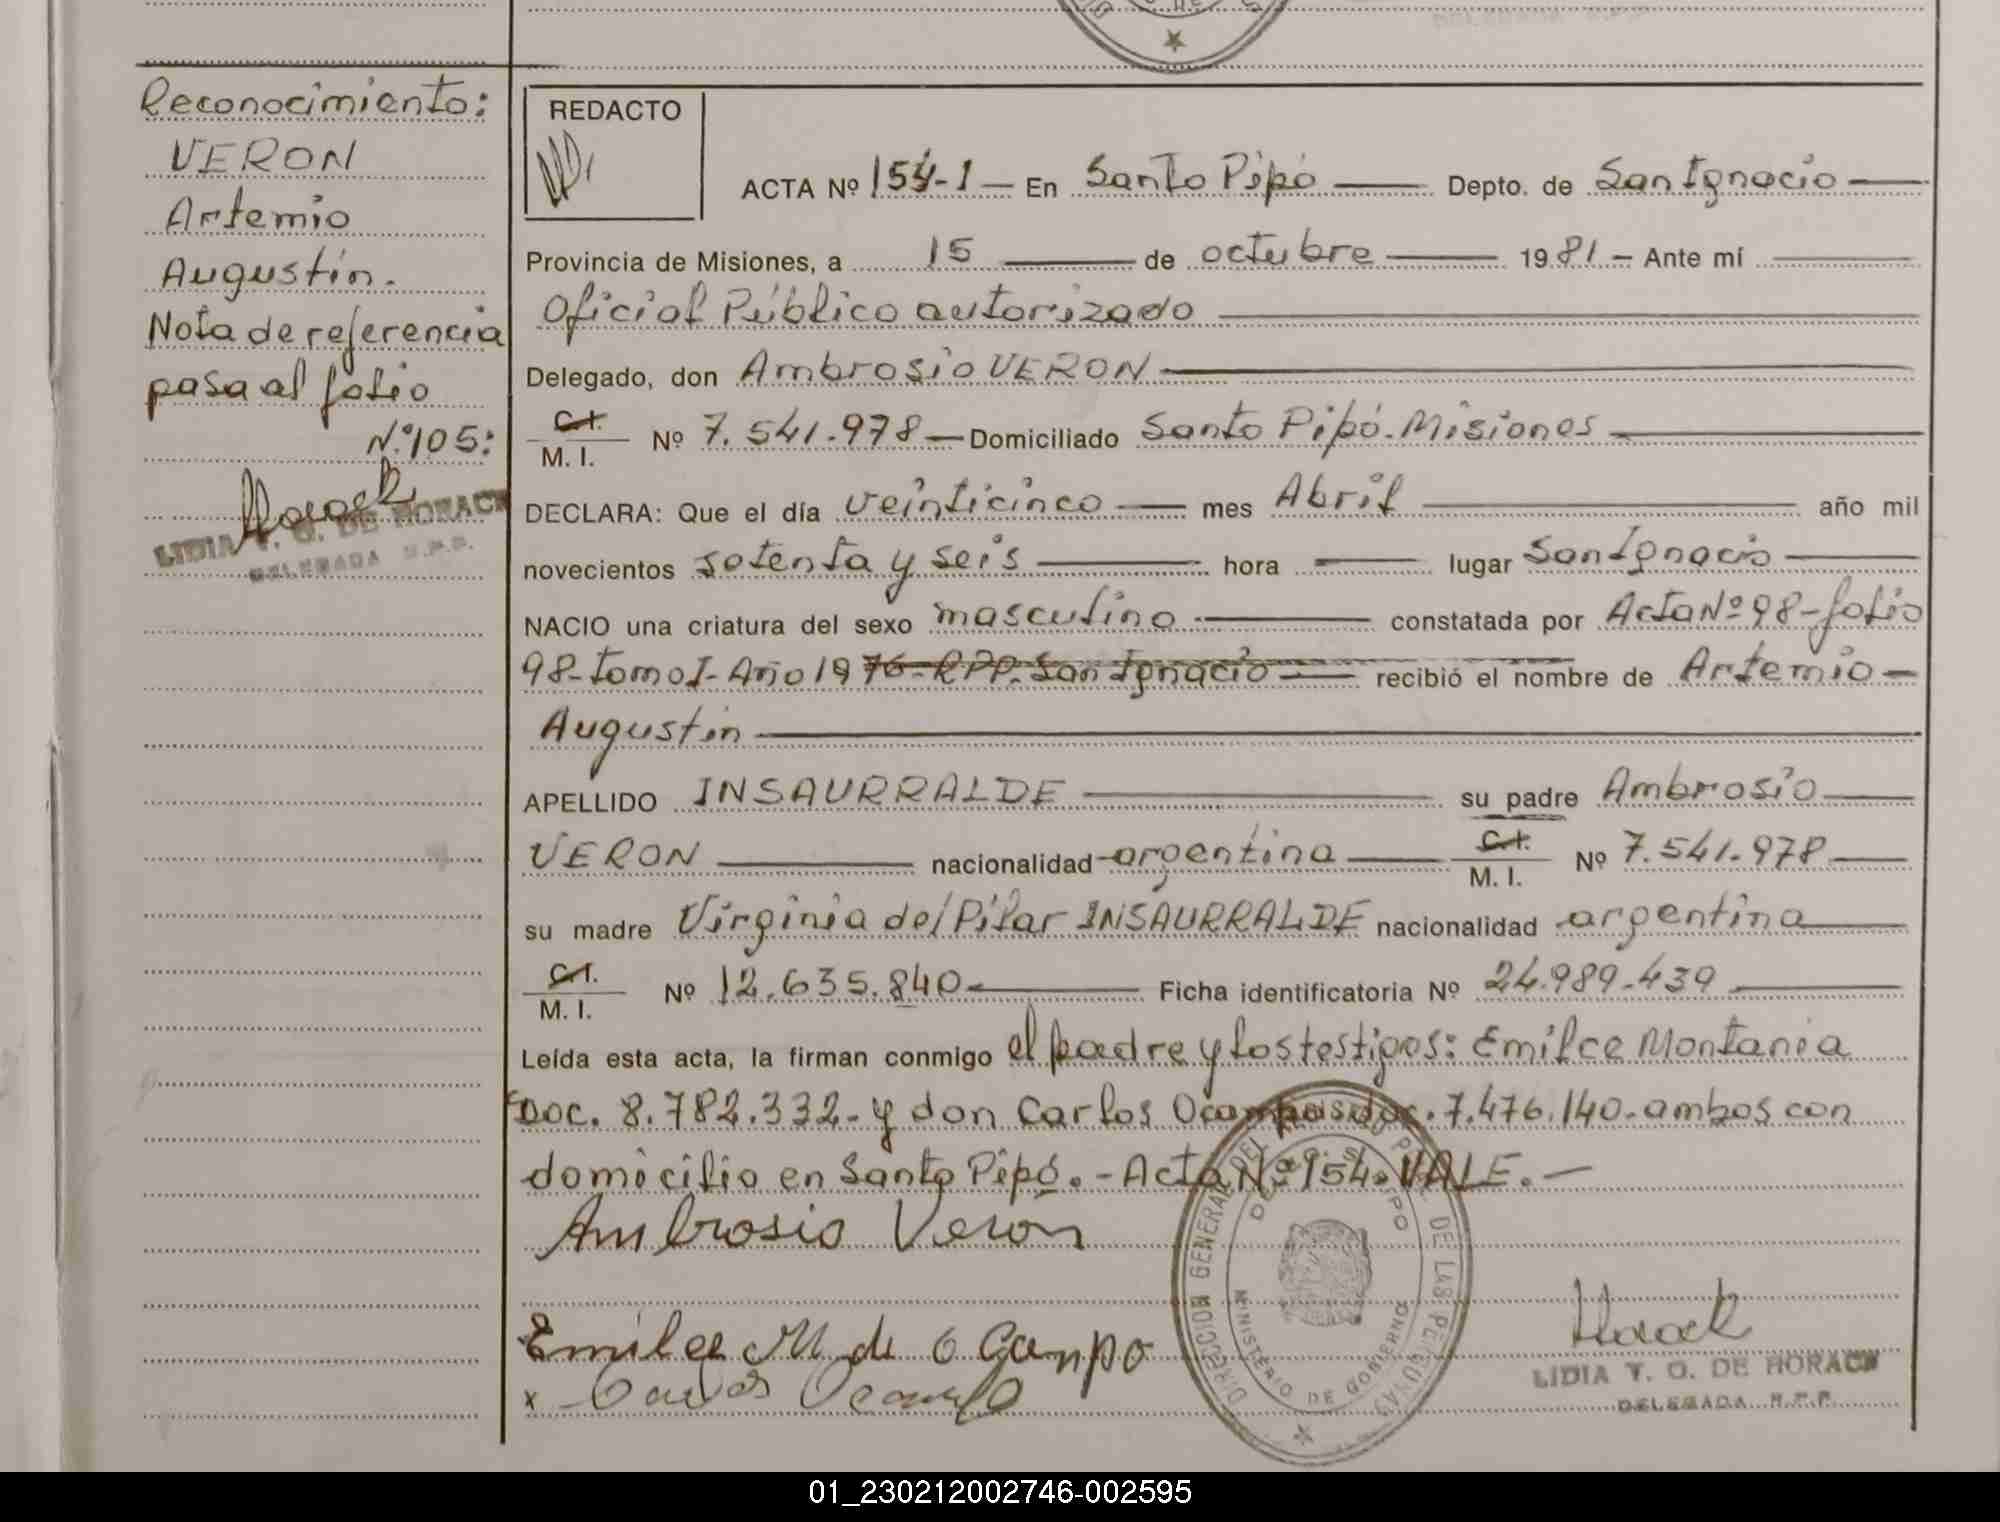 DELEGADA R.P.P.
Reconocimiento:
VERON
Artemio
Augustín.
Nota de referencia
pasa al folio
N.º 105:
LIDIA T. O. DE HORACK
DELEGADA R.P.P.
REDACTO
ACTA Nº 154-1 — En Santo Pipó — Depto. de San Ignacio —
Provincia de Misiones, a 15 — de octubre — 1981 — Ante mí —
Oficial Público autorizado —
Delegado, don Ambrosio VERON —
C.I.
M. I. Nº 7.541.978 — Domiciliado Santo Pipó. Misiones —
DECLARA: Que el día veinticinco — mes Abril — año mil
novecientos setenta y seis — hora — lugar San Ignacio —
NACIO una criatura del sexo masculino — constatada por Acta Nº 98 - folio
98 - tomo I - Año 1976 - RPP. San Ignacio — recibió el nombre de Artemio —
Augustín —
APELLIDO INSAURRALDE — su padre Ambrosio —
VERON — nacionalidad argentina — C.I.
M. I. Nº 7.541.978 —
su madre Virginia del Pilar INSAURRALDE nacionalidad argentina —
C.I.
M. I. Nº 12.635.840 — Ficha identificatoria Nº 24.989.439 —
Leída esta acta, la firman conmigo el padre y los testigos: Emilce Montania
Doc. 8.782.332 - y don Carlos Ocampos doc. 7.476.140 - ambos con
domicilio en Santo Pipó. - Acta Nº 154. VALE. —
Ambrosio Veron
Emilce M de O Campo
x Carlos Ocampo
DIRECCION GENERAL DEL REGISTRO P. DE LAS PERSONAS
MINISTERIO DE GOBIERNO
LIDIA T. O. DE HORACK
DELEGADA R.P.P.
01_230212002746-002595